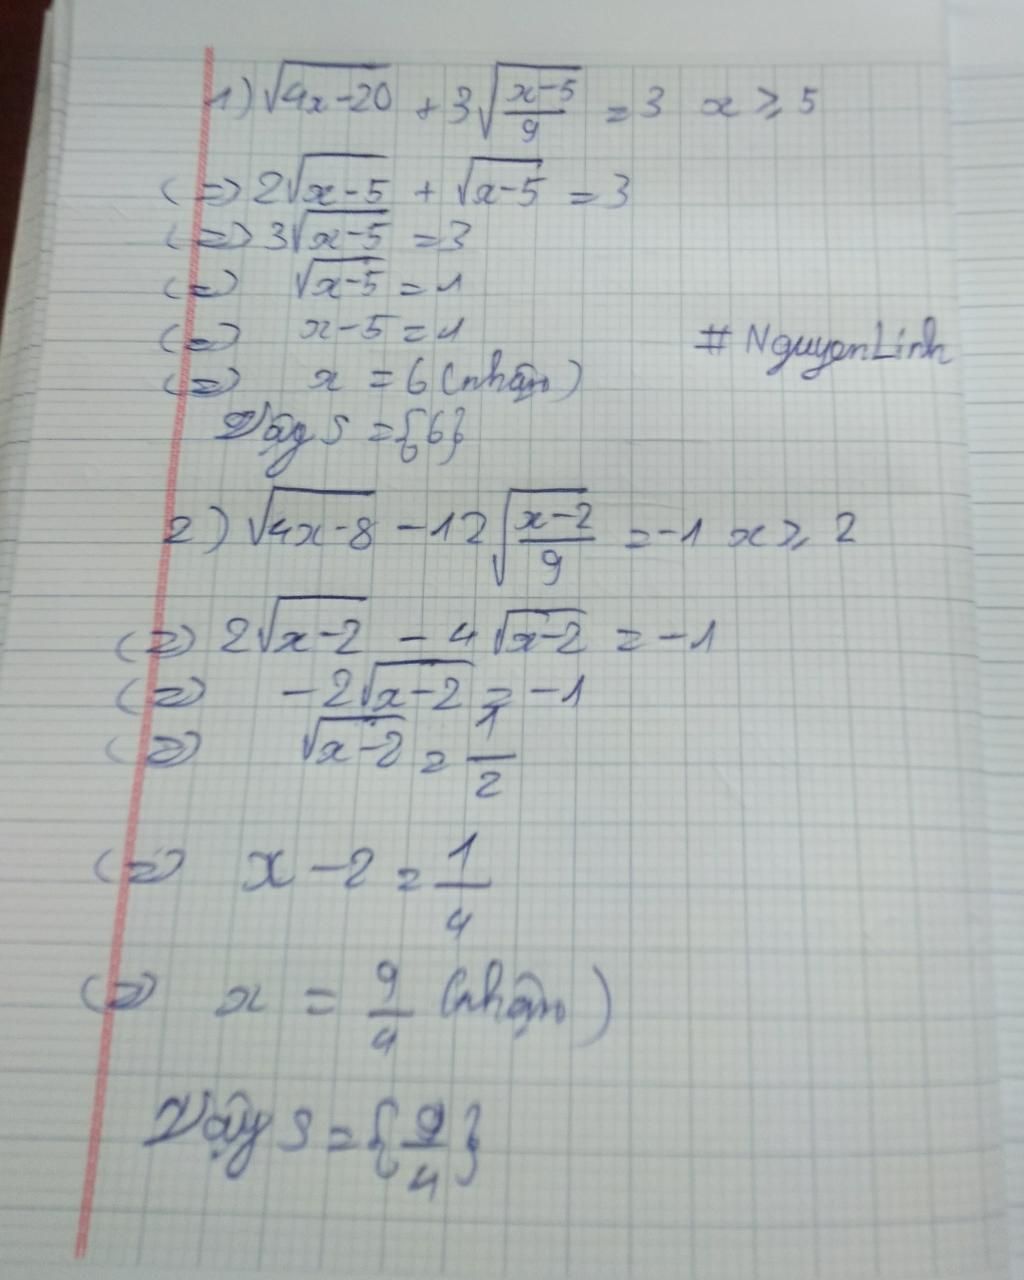 1) √(4x-20) + 3√((x-5)/9) = 3 x ≥ 5
(=) 2√(x-5) + √(x-5) = 3
(=) 3√(x-5) = 3
(=) √(x-5) = 1
(=) x-5 = 1
# NguyenLinh
(=) x = 6 (nhận)
Vậy S = {6}
2) √(4x-8) - 12√((x-2)/9) = -1 x ≥ 2
(=) 2√(x-2) - 4√(x-2) = -1
(=) -2√(x-2) = -1
(=) √(x-2) = 1/2
(=) x-2 = 1/4
(=) x = 9/4 (nhận)
Vậy S = {9/4}